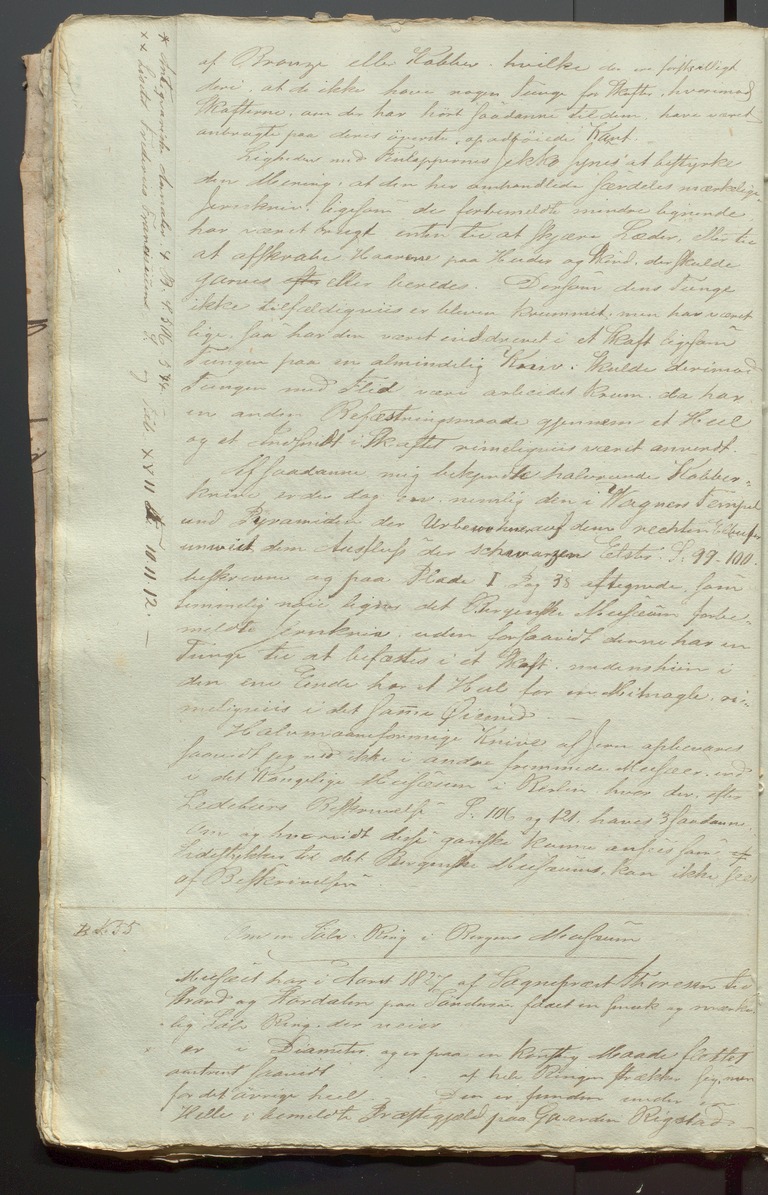 af Bronze eller Kobber, hvilke der ere forskielligt
deri, at de ikke have nogen Tunge for Skaftet, hvorimod
Skafterne, om der har hört saadanne til dem, have været
anbragte paa deres överste, opadböiede Kant.
Ligheden med Finlappernes Jekko synes at bestyrke
den Mening, at den her omhandlede særdeles mærkelige
Jernkniv, ligesom de forbemeldte mindre lignende,
har været brugt enten til at skjære Læder, eller til
at afskrabe Haarene paa Huder og Skind, der skulde
garves eller beredes. Dersom dens Tunge
ikke tilfældigviis er bleven krummet, men har været
lige, saa har den været inddrevet i et Skaft ligesom
Tungen paa en almindelig Kniv; skulde derimod
Tungen med Flid være arbeidet krum, da har
en anden Befæstningsmaade gjennem et Hul
og et Indsnit i Skaftet rimeligviis været anvendt.
Af saadanne mig bekjendte halvrunde Kobber-
knive, er der dog een, nemlig den i Wagners Tempel
und Pyramiden der Urbewohner auf dem rechten Elbufer
unweit dem Ausfluss der schwarzen Elster S. 99-100.
beskrevne og paa Plade I Fig 38 aftegnede, som
temmelig nöie ligner det Bergenske Museum forbe-
meldte Jernkniv, uden forsaavidt denne har en
Tunge til at befæstes i et Skaft, medens hiin i
den ene Ende har et Hul for en Nitnagle, ri-
meligviis i det samme Öiemed. —
Halvmaaneformige Knive af Jern opbevares
saavidt jeg ved ikke i andre fremmede Museer, end
i det Kongelige Museum i Berlin hvor der, efter
Ledeburs Beskrivelse S. 106 og 121. haves 3 saadanne.
Om og hvorvidt disse ganske kunne ansees som
Sidestykker til det Bergenske Museums, kan ikke sees
af Beskrivelsen.
Om en Sölv-Ring i Bergens Museum
Museet har i Aaret 1827 af Sognepræst Thoresen til
Strand og Aardalen paa Söndmör faaet en smuk og mærke-
lig Sölv Ring, der veier
er i Diameter, og er paa en konstig Maade flettet
omtrent saavidt af hele Ringen strækker sig, men
for det övrige heel. Den er funden under en
Helle i bemeldte Præstegjeld paa Gaarden Rigstad
* Antiquariske Annaler 4 B.
10.11.12. —